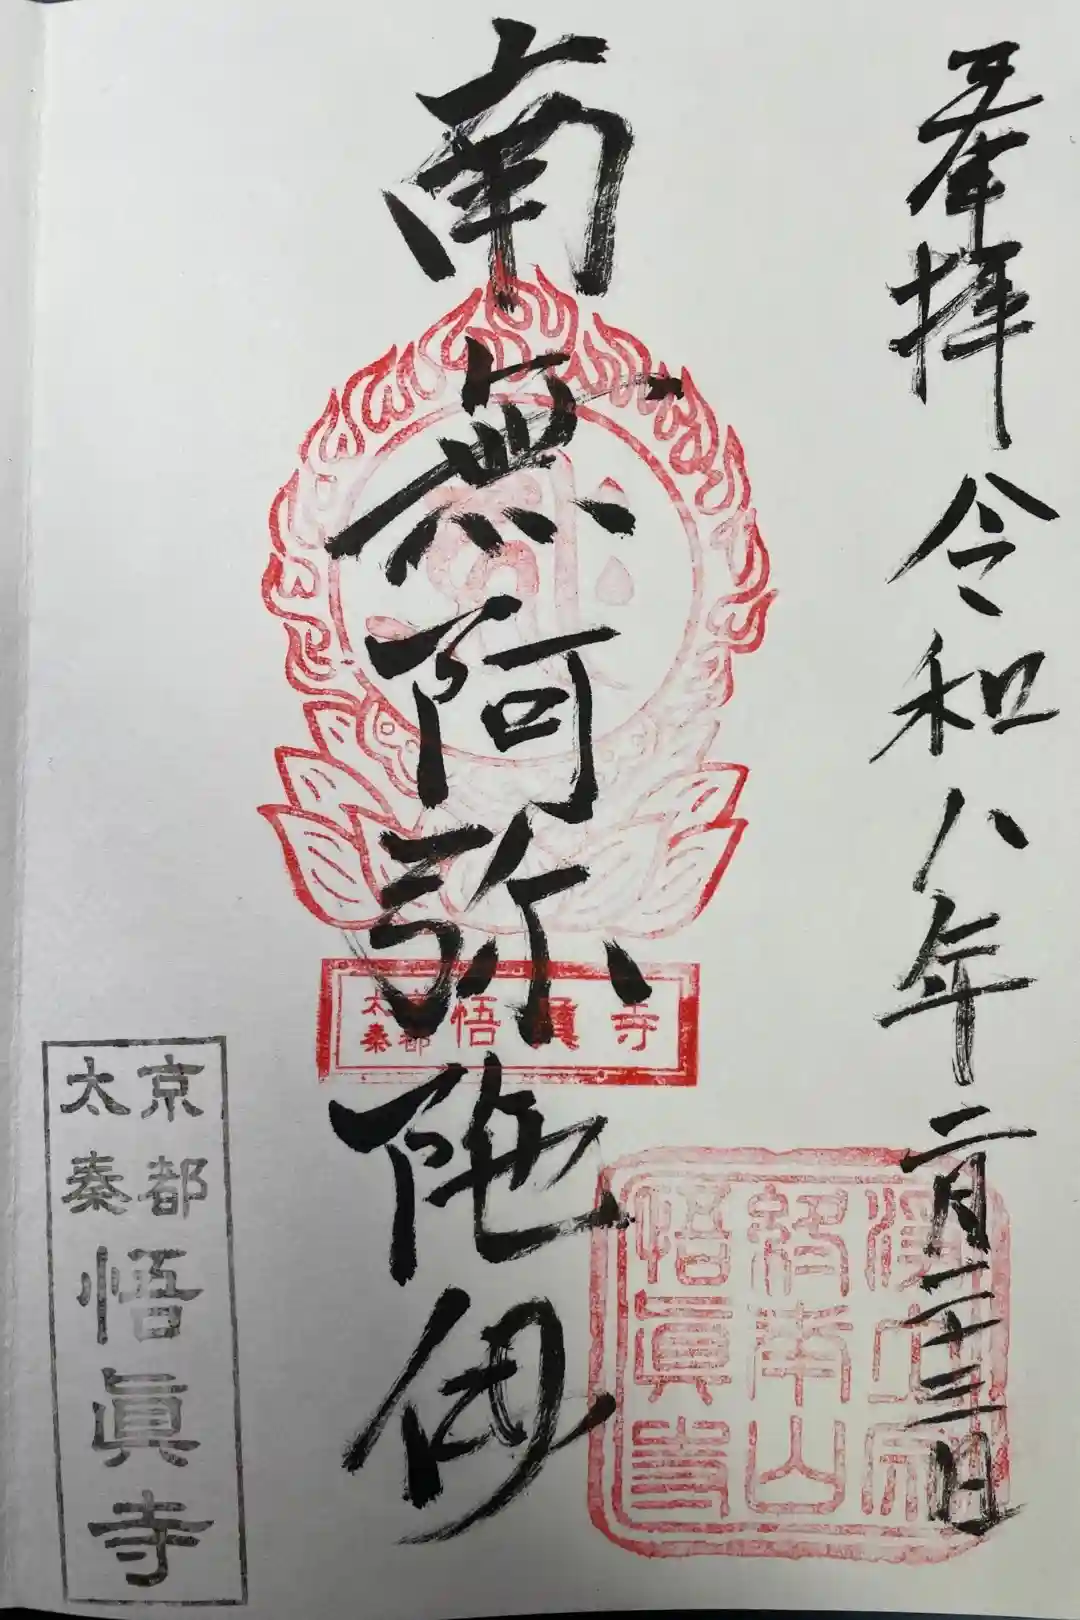 奉拝 令和八年二月二十三日
南無阿弥陀仏
太秦 京都 悟眞寺
浄土宗
終南山
悟眞寺
京都
太秦
悟眞寺